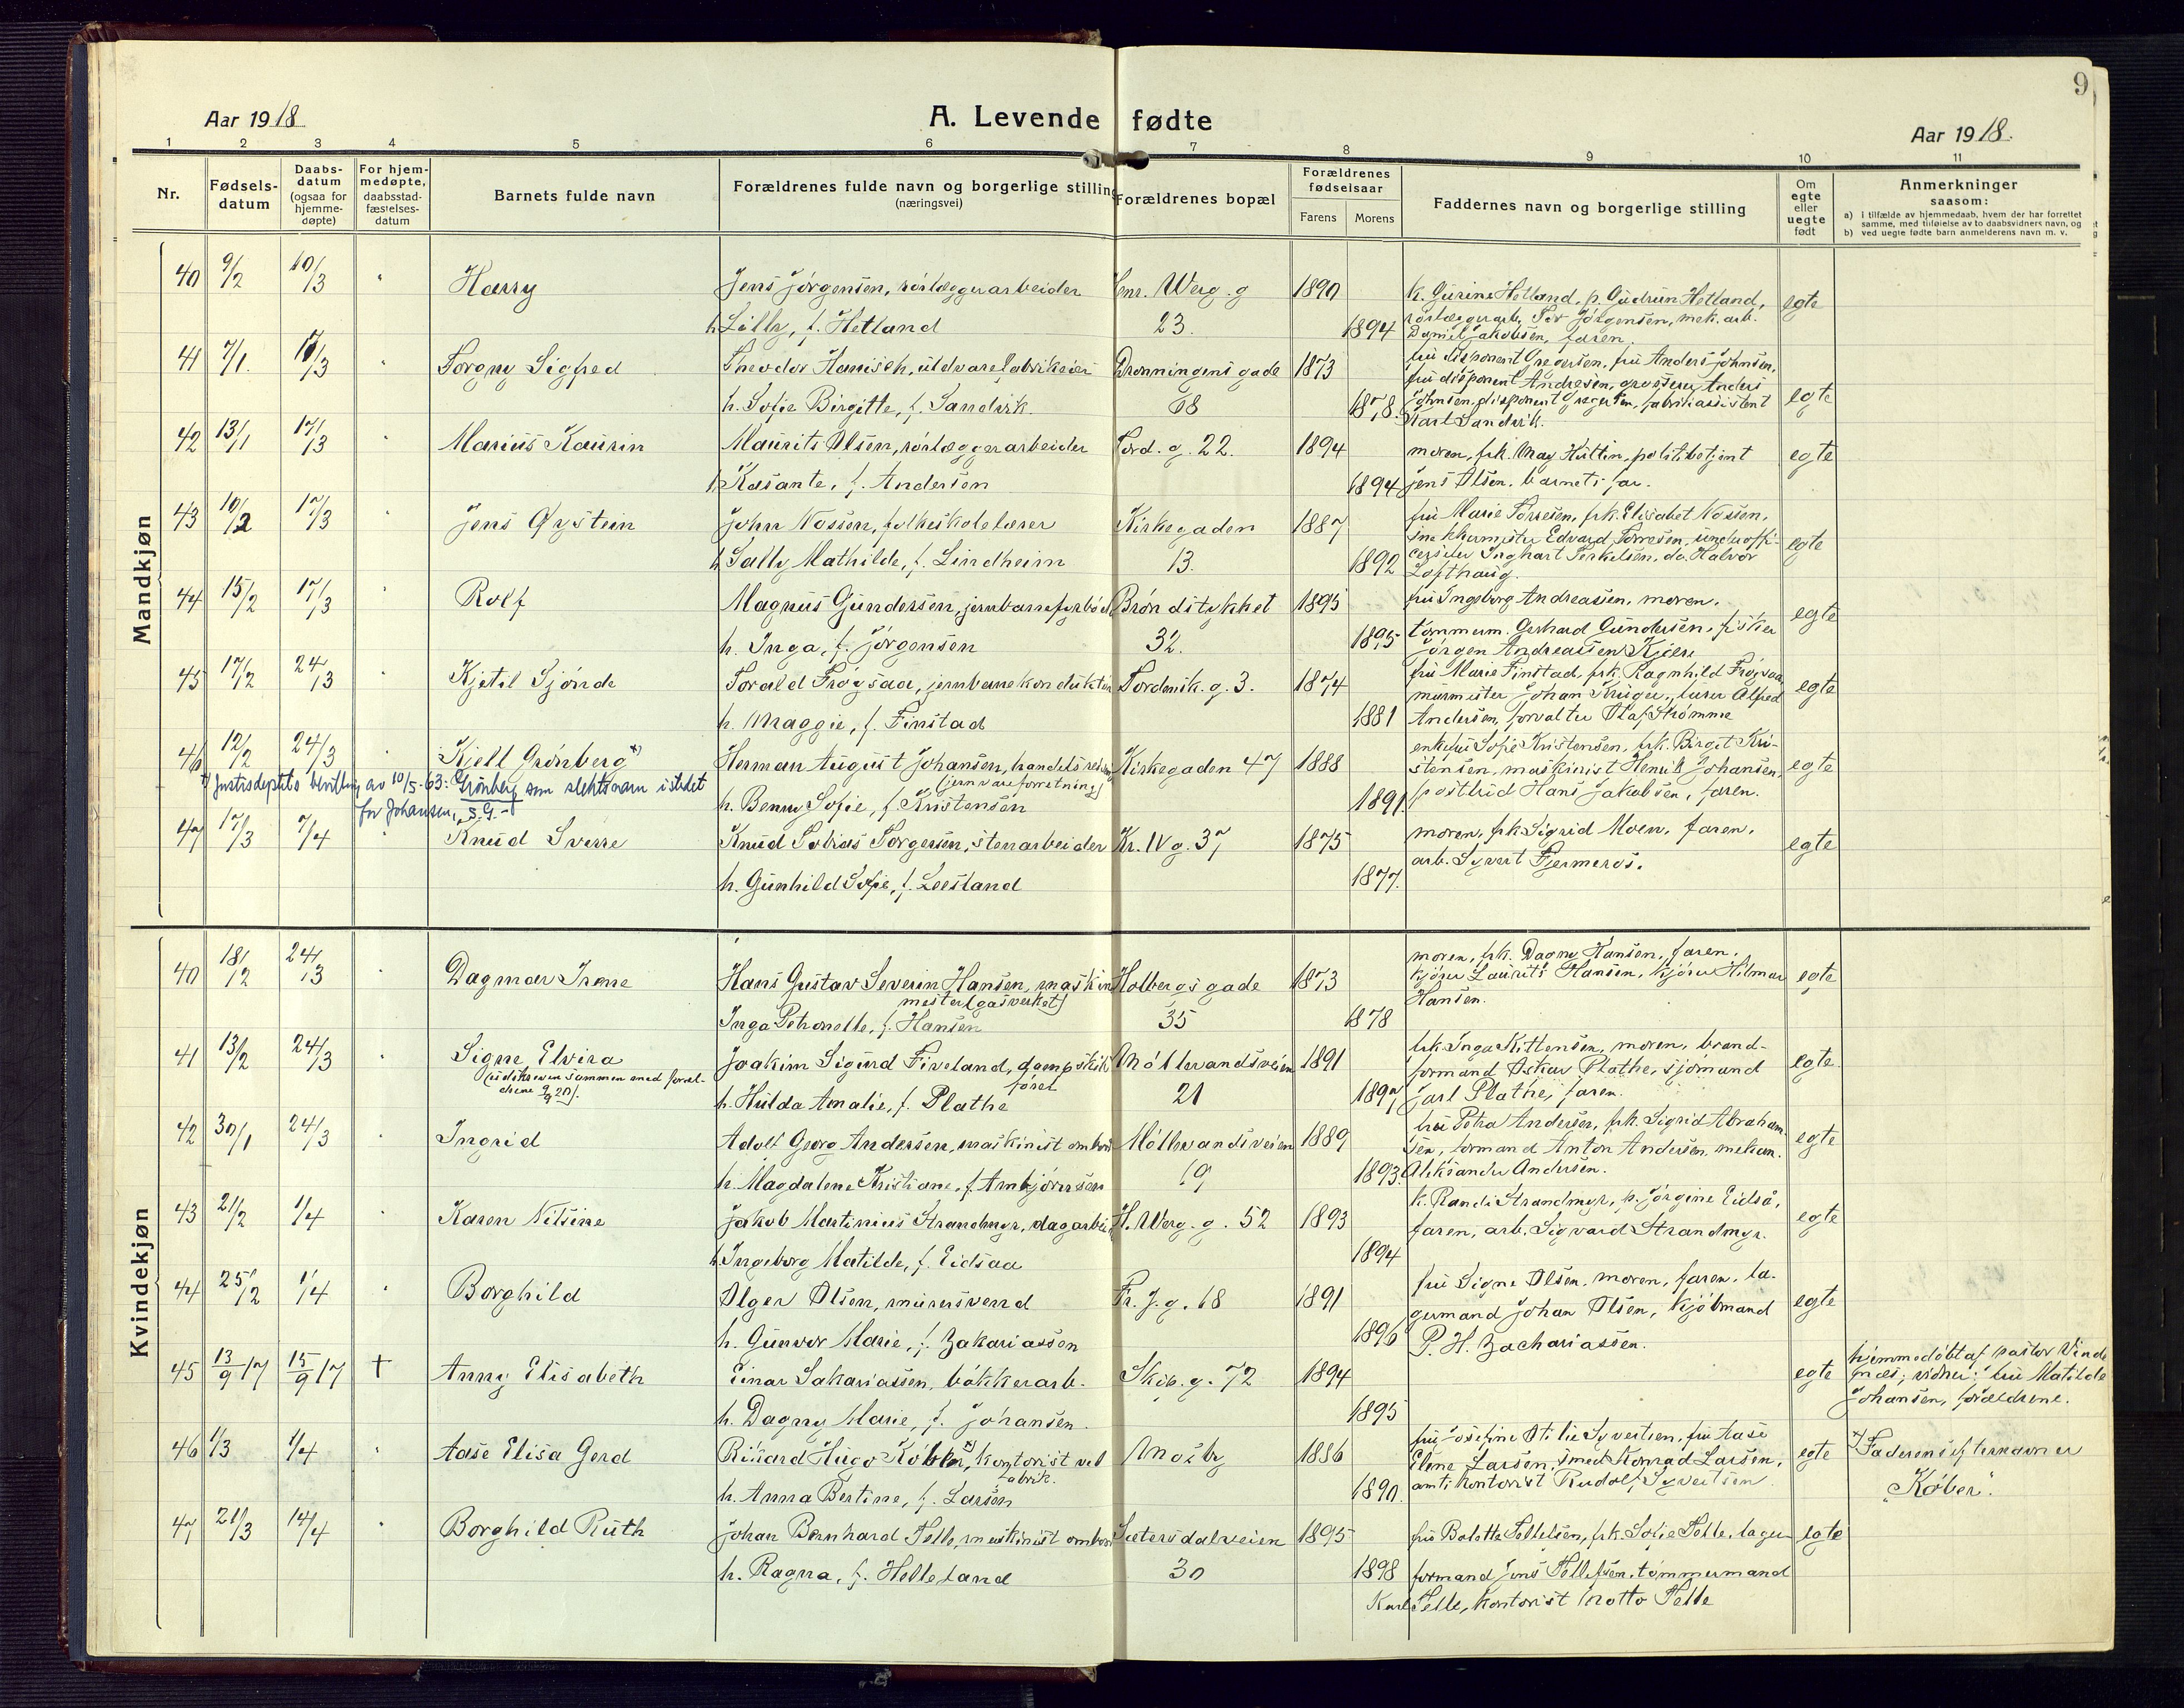 9
Aar 1918
A. Levende fødte
Aar 1918.
1 2 3 4 5 6 7 8 9 10 11
Nr.
Fødsels-
datum
Daabs-
datum
(ogsaa for
hjemme-
døpte)
For hjem-
medøpte,
daabsstad-
fæstelses-
datum
Barnets fulde navn
Forældrenes fulde navn og borgerlige stilling
(næringsvei)
Forældrenes bopæl
Forældrenes
fødselsaar
Farens Morens
Faddernes navn og borgerlige stilling
Om
egte
eller
uegte
født
Anmerkninger
saasom:
a) i tilfælde av hjemmedaab, hvem der har forrettet
samme, med tilføielse av to daabsvidners navn, og
b) ved uegte fødte barn anmelderens navn m. v.
Mandkjøn
40 9/2 10/3 Harry
Jens Jørgensen, rørlæggerarbeider
h. Lilly, f. Hetland
Henr. Werg. g
23.
1890
1894
k. Gurine Hetland, p. Gudrun Hetland,
rørlæggerarb. Jørgensen, mek. arb.
Daniel Jakobsen, faren.
egte
41 7/1. 17/3 Torgny Sigfred
Theodor Hanisch, uldvarefabrikeier
h. Sofie Birgitte, f. Sandvik.
Dronningens gade
68
1873
1878.
fru disponent Gregersen, fru Anders Johnsen,
fru disponent Andresen, grosserer Anders
Johnsen, disponent Gregersen, fabrikassistent
Karl Sandvik.
egte
42 13/1 17/3 Marius Kaurin
Maurits Olsen, rørlæggerarbeider
h. Kasante, f. Andersen
Tord. g. 22.
1894
1894
moren, frk. May Hüttin, politibetjent
Jens Olsen, barnets far.
egte
43 10/2 17/3 Jens Øystein
John Nossen, folkeskolelærer
h. Sally Mathilde, f. Lindheim
Kirkegaden
13.
1887
1892
fru Marie Torresen, frk. Elisabet Nossen,
Edvard Torresen, underoffi-
cerselev Inghart Terkelsen, do. Halvor
Lofthaug.
egte
44 15/2 17/3 Rolf
Magnus Gundersen, jernbanefyrbøt
h. Inga, f. Jørgensen
Brøndstykket
32.
1895
1895
fru Ingeborg Andreassen, moren,
tømmerm. Gerhard Gundersen, fisker
Jørgen Andreassen Kjære
egte
45 17/2 24/3 Kjetil Sjønde
Torald Frøysaa, jernbanekonduktør
h. Maggie, f. Finstad
Tordensk. g. 3.
1874
1881
fru Marie Finstad, frk. Ragnhild Frøysaa,
murmester Johan Krüger, lærer Alfred
Andersen, forvalter Olaf Strømme
egte
46 12/2 24/3 Kjell Grønberg x)
Herman August Johansen, handelsreisen
(jernvareforretning)
h. Benny Sofie, f. Kristensen
Kirkegaden 47
1888
1891.
enkefru Sofie Kristensen, frk. Birgit Kri-
stensen, maskinist Henrik Johansen,
postbud Hans Jakobsen, faren.
egte
x) Justisdeptets bevilling av 10/5-63: Grønberg som slektsnavn istedet
for Johansen, S.G.-
47 17/3 7/4 Knud Sverre
Knud Tobias Torgersen, stenarbeider
h. Gunhild Sofie, f. Leestand
Kr. IV g. 37
1875
1877.
moren, frk Sigrid Moen, faren,
arb. Syvert Fjermeros.
egte
Kvindekjøn
40 18/2 24/3 Dagmar Irene
Hans Gustav Severin Hansen, maskin
mester (gasverket)
Inga Petronelle, f. Hansen
Holbergs gade
35
1873
1878
moren, frk. Dagny Hansen, faren,
kjører Laurits Hansen, kjører Hilmar
Hansen.
egte
41 13/2 24/3 Signe Elvira
(utskreven sammen med foræl-
drene 20).
Joakim Sigurd Fiveland, dampskibs
fører
h. Hulda Amalie, f. Plathe
Møllevandsveien
21
1891
1897
frk. Inga Kittensen, moren, brand-
formand Oskar Plathe, sjømand
Jarl Plathe, faren.
egte.
42 30/1 24/3 Ingrid
Adolf Georg Andersen, maskinist ombor
h. Magdalene Kristiane, f. Arnbjørnsen
Møllevandsveien
19
1889
1893.
fru Petra Andersen, frk. Sigrid Abraham-
sen, formand Anton Andersen, mekan.
Aleksander Andersen.
egte
43 21/2 1/4 Karen Nilsine
Jakob Martinius Strandmyr, dagarbei
h. Ingeborg Matilde, f. Eidsaa
H. Werg. g. 52
1893
1894
k. Randi Strandmyr, p. Jørgine Eidså,
faren, arb. Sigvard Strandmyr.
egte
44 25/2 1/4 Borghild
Olger Olsen, murersvend
h. Gunvor Marie, f. Zakariassen
Fr. g. 68
1891
1896
fru Signe Olsen, moren, faren, la-
germand Johan Olsen, kjøbmand
P. H. Zachariassen.
egte
45 13/9 17 15/9 17 † Anny Elisabeth
Einar Sakariassen, bøkkerarb.
h. Dagny Marie, f. Johansen.
Skib. g. 72
1894
1895
egte
hjemmedøbt af pastor Vinde
næs; vidner: fru Matilde
Johansen, forældrene.
46 1/3 1/4 Aase Elisa Gerd
Rikard Hugo Kobber x), kontorist ved
fabrik.
h. Anna Bertine, f. Larsen
Mosby
1886
1890.
fru Josefine Otilie Syvertsen, fru Aase
Elene Larsen, smed Konrad Larsen,
amtskontorist Rudolf Syvertsen
egte
x) Faderens efternavn er
"Køber".
47 21/3 14/4 Borghild Ruth
Johan Bernhard Felle, maskinist ombor
h. Ragna, f. Helleland
Sætersdalsveien
30
1895
1898
fru Bolette Tellefsen, frk. Sofie Felle, lager-
formand Jens Tellefsen, tømmermand
Karl Felle, kontorist Motto Felle
egte